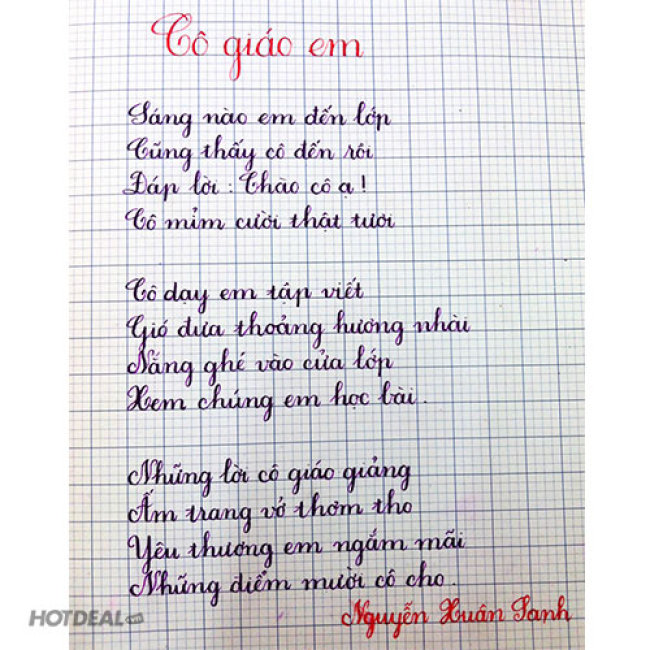 Cô giáo em
Sáng nào em đến lớp
Cũng thấy cô đến rồi
Đáp lời : Chào cô ạ !
Cô mỉm cười thật tươi
Cô dạy em tập viết
Gió đưa thoảng hương nhài
Nắng ghé vào cửa lớp
Xem chúng em học bài .
Những lời cô giáo giảng
Ấm trang vở thơm tho
Yêu thương em ngắm mãi
Những điểm mười cô cho .
Nguyễn Xuân Sanh
HOTDEAL